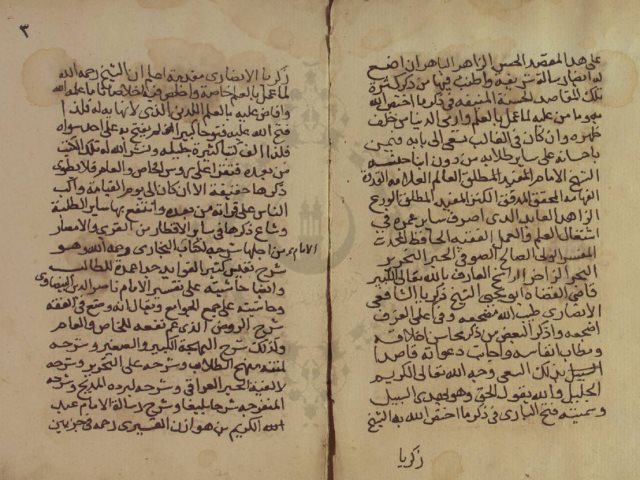 على هذا المقصد الحسن الزاهر الباهر ان اضع
له ايضا رسالة شريفة واطنب فيها من ذكر كثرة
تلك المقاصد الحسنة المنيفة في ذكر ما اختص الله
به وما من عليه لما عمل بالعلم وارمى الدنيا من خلف
ظهره وان كان في الغالب تسعى الى بابه فيمن
باحسانه على ساير طلابه من دون ابنا جنسه
الشيخ الامام المفيد المطلق العالم العلامة القدوة
الفهامة المحقق المدقق الكنز المفيد المطلق الورع
الزاهد العابد الذي اصرف ساير عمره في
اشتغال العلم والعمل الفقيه الحافظ المحدث
المفسر الولي الصالح الصوفي الحبر النحرير
البحر الزاخر الراسخ العارف بالله تعالى الكبير
قاضي القضاة ابو يحيى الشيخ زكريا الشافعي
الانصاري طيب الله مضجعه وفي اعلى الغرف
اضجعه واذكر البعض من ذكر محاسن اخلاقه
ومطاب انفاسه واجابت دعواته قاصدا
بذلك السعي وجه الله تعالى الكريم
الجليل والله يقول الحق وهو يهدي السبيل
وسميته فتح الباري في ذكر ما اختص الله به الشيخ
زكريا
٣
زكريا الانصاري مقدمة اعلم ان الشيخ رحمه الله
لما عمل بالعلم خاصة واخلص في اخلاصا تاما علمه الله
وافاض عليه بالعلم اللدني الذي لا نهاية له فلذا
فتح الله عليه فتوحا كبيرا لم يفتح به على احد سواه
فلذا الف كتبا كثيرة جليلة ونشر الله له تلك الكتب
من بعده فتقرا على روس الخاص والعام فلا يطوى
ذكرها حقيقة الا ان كان الى يوم القيامة واكب
الناس على قراته من بعده وانتفع بها ساير الطلبة
وشاع ذكرها في ساير الاقطار من القرى والامصار
من اجلها شرحه لصحاف البخاري رحمه الله وهو
شرح نفيس كثير الفوايد جدا عمدة للطالب
وايضا حاشيته على تفسير الامام ناصر الدين البيضاوي
وحاشيته على جمع الجوامع ويقال انه وضع في الفقه
شرح الروض الذي عم نفعه للخاص والعام
وكذلك شرح البهجة الكبير والصغير وشرحه
لمتنه منهج الطلاب وشرحه على التحرير وشرحه
لالفية الحبر العراقي وشرحه لبردة المديح وشرحه
المنفرجه شرحا بليغا وشرح رسالة الامام عبد
الكريم بن هوازن القشيري رحمه في جزيين